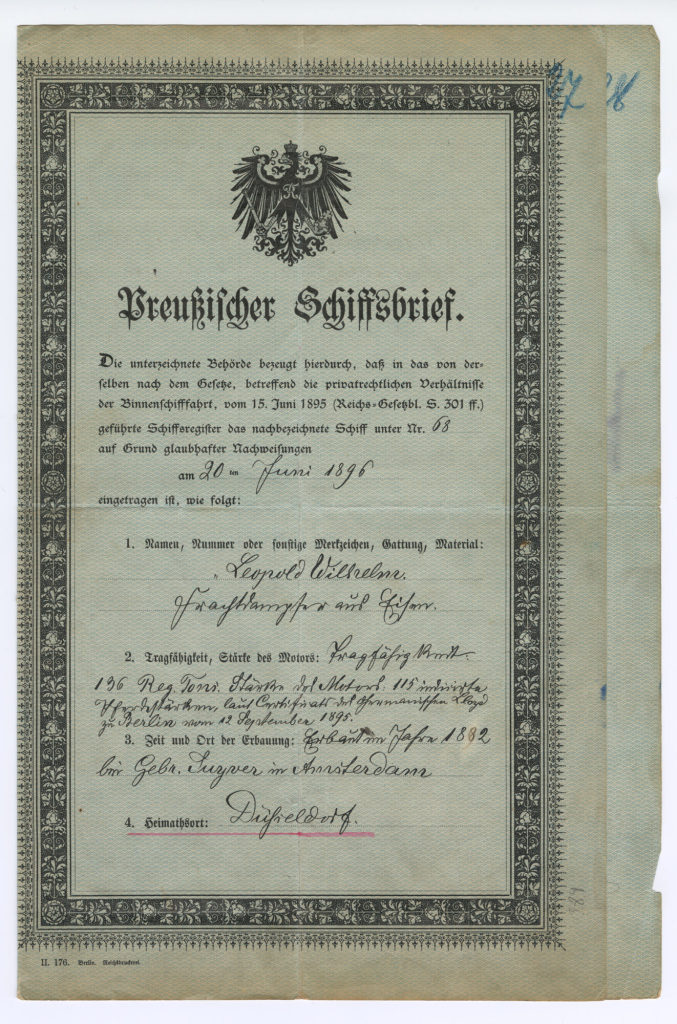 27 28
Preußischer Schiffsbrief.
Die unterzeichnete Behörde bezeugt hierdurch, daß in das von der-
selben nach dem Gesetze, betreffend die privatrechtlichen Verhältnisse
der Binnenschifffahrt, vom 15. Juni 1895 (Reichs-Gesetzbl. S. 301 ff.)
geführte Schiffsregister das nachbezeichnete Schiff unter Nr. 68
auf Grund glaubhafter Nachweisungen
am 20 ten Juni 1896
eingetragen ist, wie folgt:
1. Namen, Nummer oder sonstige Merkzeichen, Gattung, Material:
„Leopold Wilhelm.
Frachtdampfer aus Eisen.
2. Tragfähigkeit, Stärke des Motors: Tragfähigkeit.
136 Reg. Tons. Stärke des Motors 115 indicirte
Pferdestärken, laut Certificats des Germanischen Lloyd
zu Berlin vom 12 September 1895.
3. Zeit und Ort der Erbauung: Erbaut im Jahre 1882
bei Gebr. Suyver in Amsterdam
4. Heimathsort: Düsseldorf.
II. 176. Berlin. Reichsdruckerei.